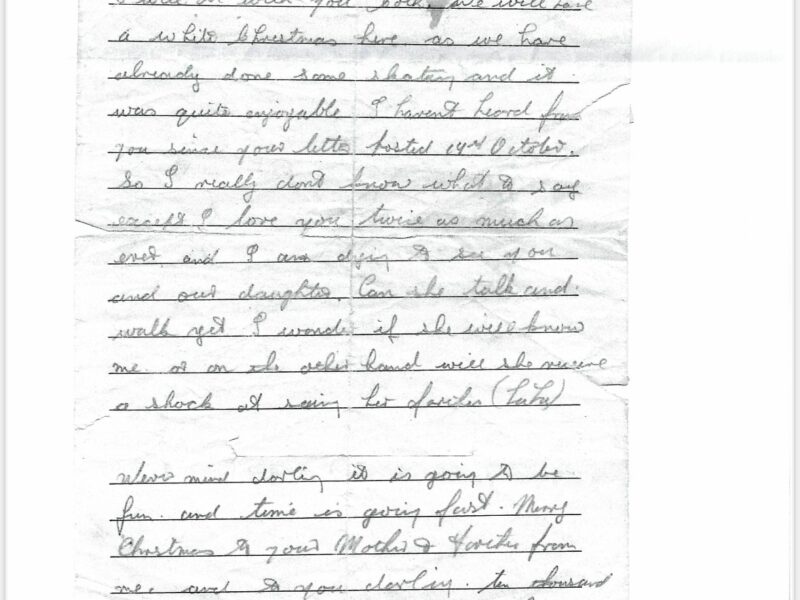 with you both. We will have
a white Christmas here as we have
already done some skating and it
was quite enjoyable I havent heard from
you since your letter posted 14th October.
So I really dont know what to say
except I love you twice as much as
ever and I am dying to see you
and our daughter. Can she talk and
walk yet I wonder if she will know
me. or on the other hand will she receive
a shock at seeing her farther (HaHa)
Never mind darling it is going to be
fun. and time is going fast. Merry
Christmas to your Mother & Farther from
me. and to you darling. ten thousand